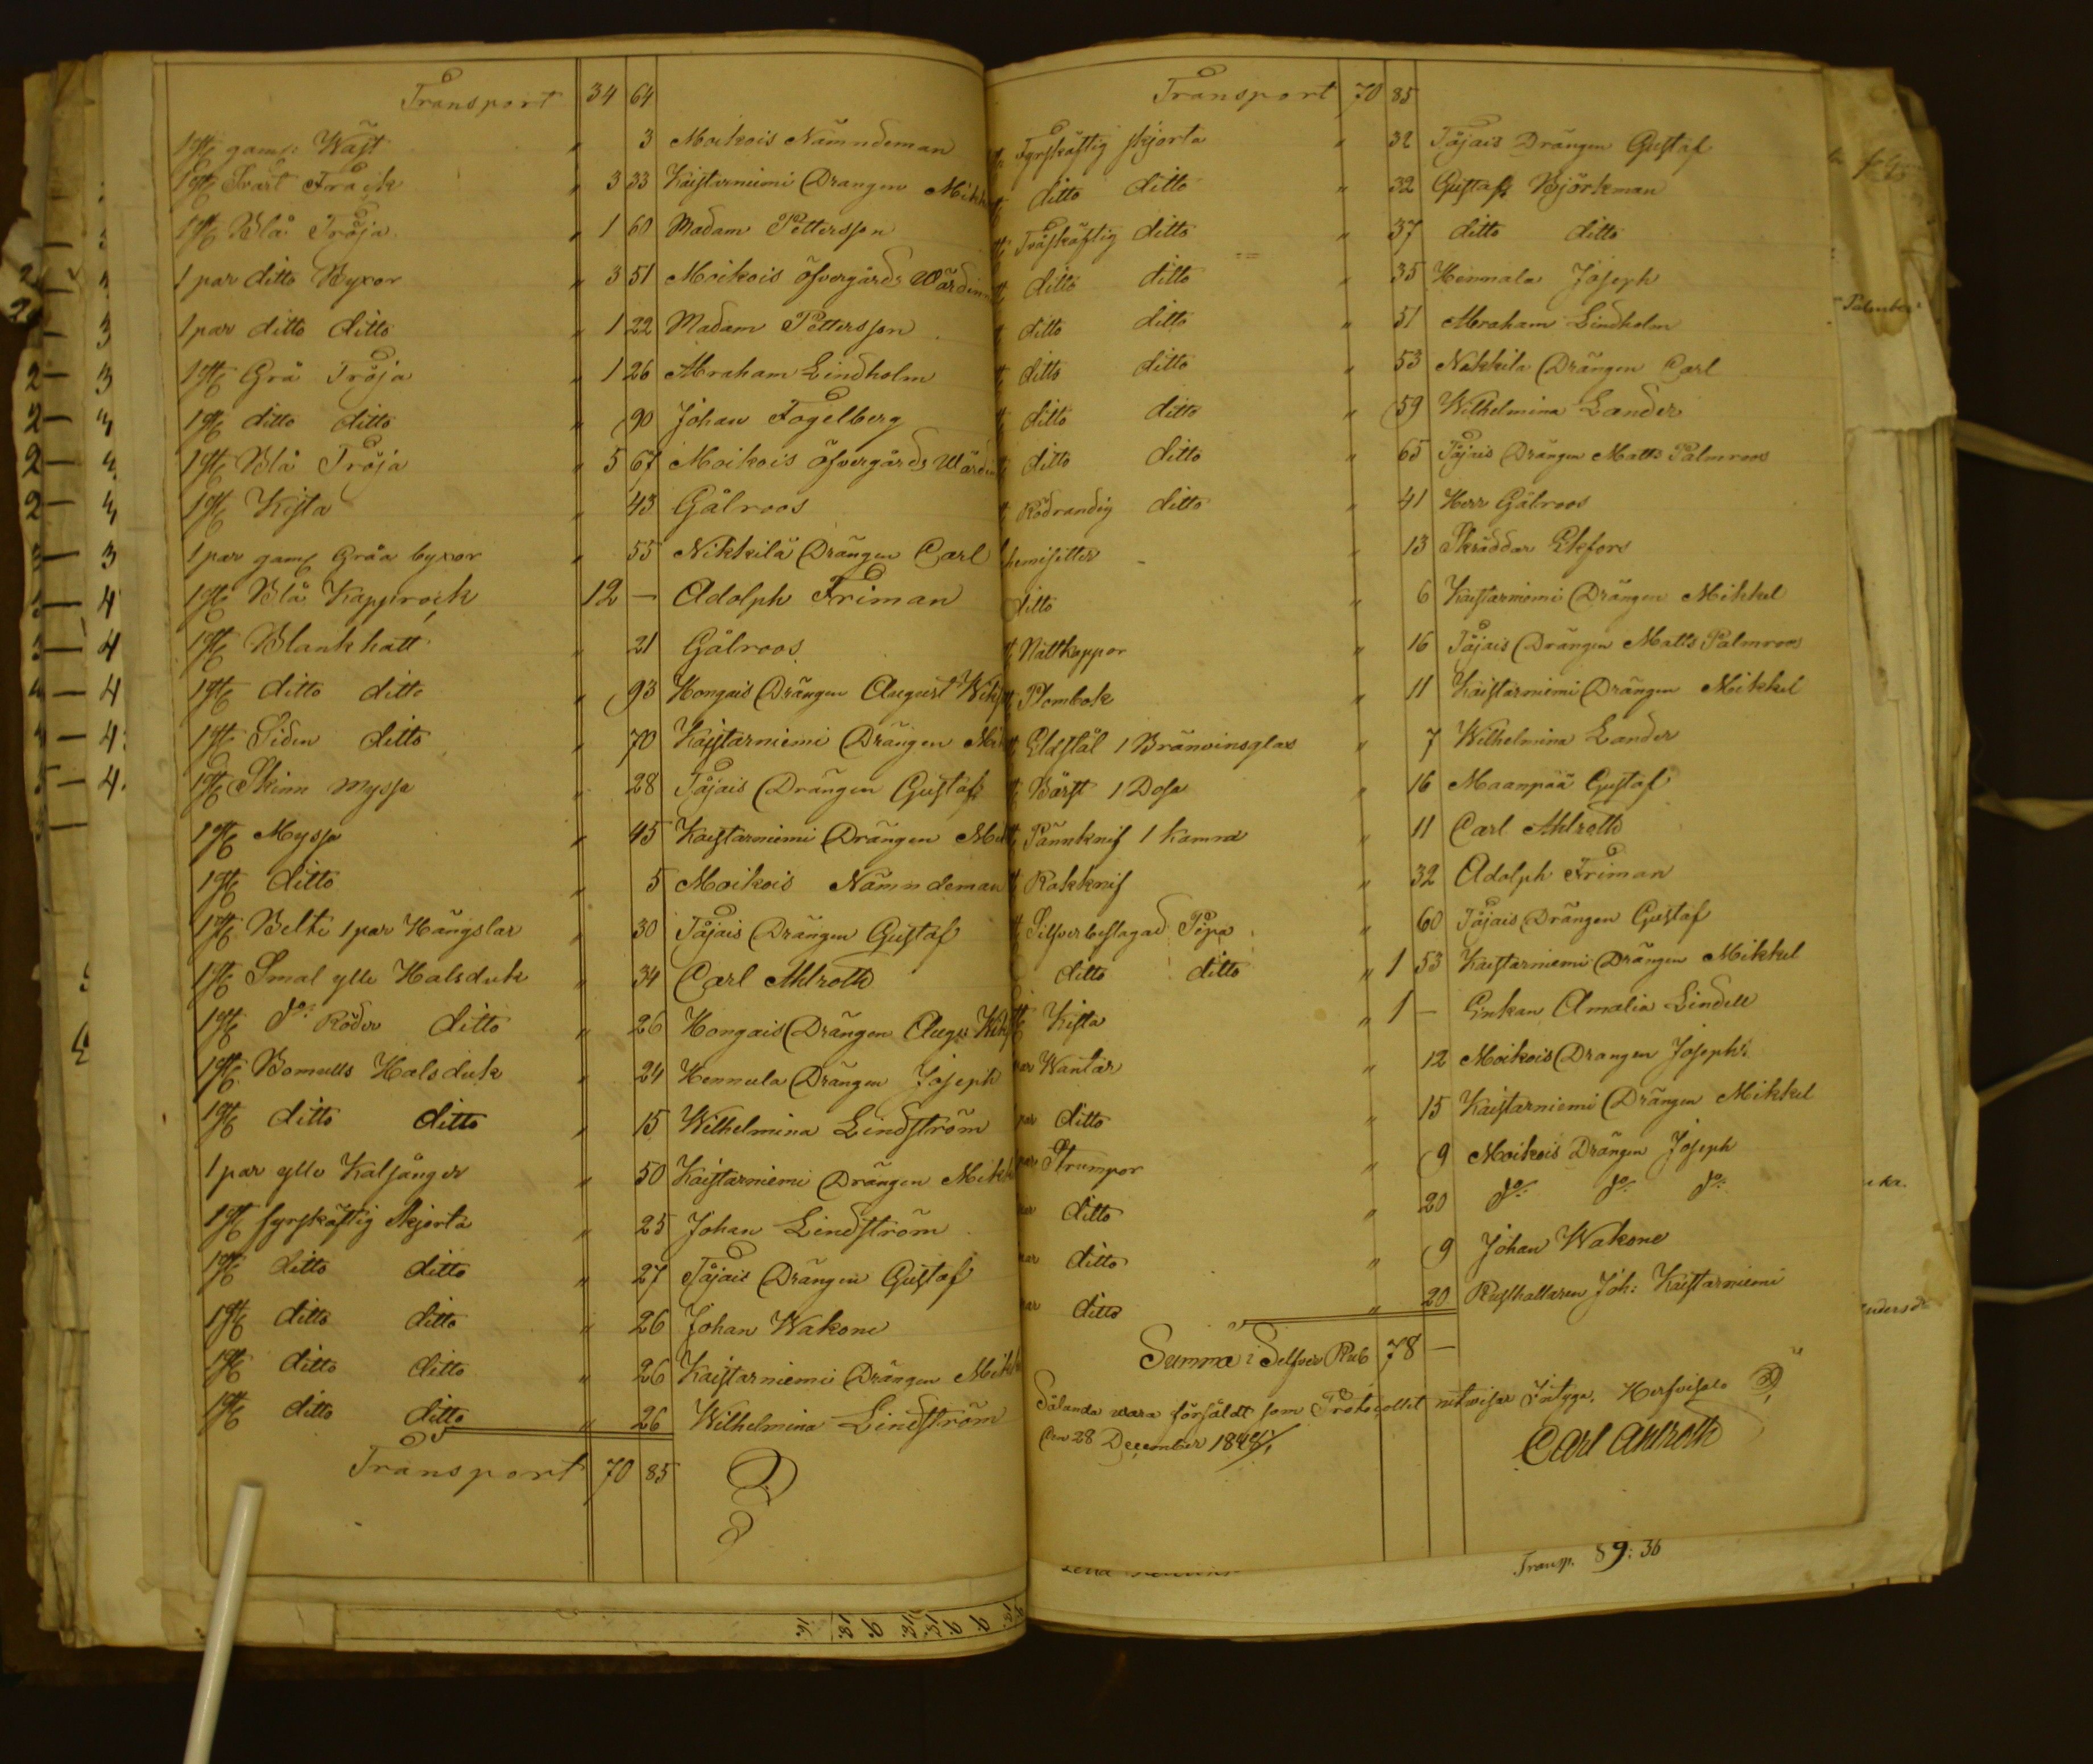 Transport 34 64
1 st: gam: Wäst " 3 Moikois Nämndeman
1 st: Svart Frack " 3 33 Kaistarniemi Drängen Mikk
1 st: Blå Tröja " 1 60 Madam Pettersson
1 par ditto Byxor " 3 51 Moikois öfvergårds Wärdinn
1 par ditto ditto " 1 22 Madam Pettersson
1 st: Grå Tröja " 1 26 Abraham Lindholm
1 st: ditto ditto " 90 Johan Fogelberg
1 st: Blå Tröja " 5 67 Moikois öfvergårds Wärdin
1 st: Kista " 43 Gålroos
1 par gam: Gråa byxor " 55 Nikkilä Drängen Carl
1 st: Blå Kapprock 12 — Adolph Friman
1 st: Blankhatt " 21 Gålroos
1 st: ditto ditto " 93 Hongais Drängen August Wik
1 st: Siden ditto " 70 Kaistarniemi Drängen Mik
1 st: Skinn myssa " 28 Tåjais Drängen Gustaf
1 st: Myssa " 45 Kaistarniemi Drängen Mik
1 st: ditto " 5 Moikois Nämndeman
1 st: Belte 1 par Hängslar " 30 Tåjais Drängen Gustaf
1 st: Smal ylle Halsduk " 34 Carl Ahlroth
1 st: do: Röder ditto " 26 Hongais Drängen Aug: Wik
1 st: Bomulls Halsduk " 24 Hennula Drängen Joseph
1 st: ditto ditto " 15 Wilhelmina Lindström
1 par ylle Kalsånger " 50 Kaistarniemi Drängen Mikk
1 st: fyrskäftig skjorta " 25 Johan Lindström
1 st: ditto ditto " 27 Tåjais Drängen Gustaf
1 st: ditto ditto " 26 Johan Wakone
1 st: ditto ditto " 26 Kaistarniemi Drängen Mikk
1 st: ditto ditto " 26 Wilhelmina Lindström
Transport 70 85
Transport 70 85
Fyrskäftig skjorta " 32 Tåjais Drängen Gustaf
ditto ditto " 32 Gustaf Björkman
Tvåskäftig ditto " 37 ditto ditto
ditto ditto " 35 Hennala Joseph
ditto ditto " 51 Abraham Lindholm
ditto ditto " 53 Nikkila Drängen Carl
ditto ditto " 59 Wilhelmina Lander
ditto ditto " 65 Tåjais Drängen Matts Palmroos
Rödrandig ditto " 41 Herr Gålroos
hemisetter " 13 Skräddar Ekfors
ditto " 6 Kaistarniemi Drängen Mikkel
Nattkappor " 16 Tåjais Drängen Matts Palmroos
Plombok " 11 Kaistarniemi Drängen Mikkel
Eldstål 1 Bränvinsglas " 7 Wilhelmina Lander
Börst 1 Dosa " 16 Maanpää Gustaf
Pännknif 1 Kamm " 11 Carl Ahlroth
Rakknif " 32 Adolph Friman
Silfverbeslagad Pipa " 60 Tåjais Drängen Gustaf
ditto ditto " 1 53 Kaistarniemi Drängen Mikkel
Kista " 1 — Enkan Amalia Lindell
par Wantar " 12 Moikois Drangen Joseph:
par ditto " 15 Kaistarniemi Drängen Mikkel
par Strumpor " 9 Moikois Drängen Joseph
par ditto " 20 do: do: do:
par ditto " 9 Johan Wakone
par ditto " 20 Rusthållaren Joh: Kaistarniemi
Summa i Silfver Rub 78 —
Sålunda vara försåldt som Protocollet utvisar Intyga,
den 28 December 1848
Carl Ahlroth
Transp. 89: 36